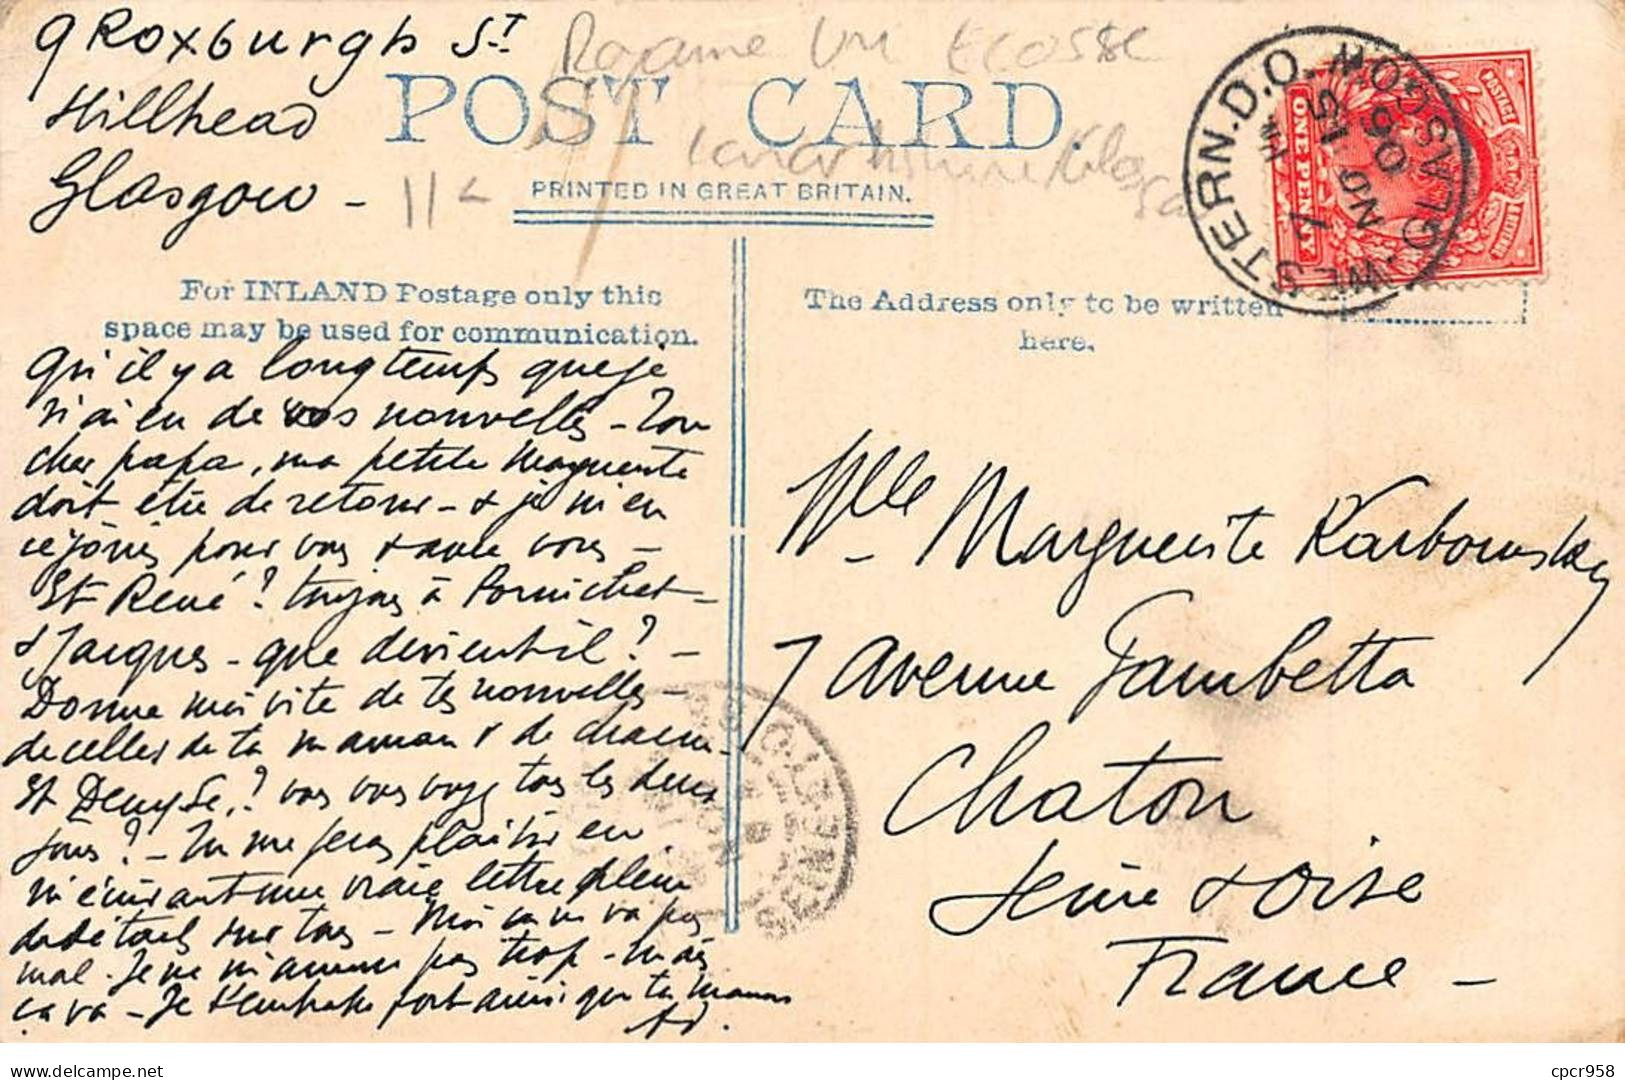 9 Roxburgh St
Hillhead
Glasgow -
Royaume Uni Ecosse
POST CARD.
PRINTED IN GREAT BRITAIN.
WESTERN.D.O. GLASGOW
7 15
NO 1
06
POSTAGE
ONE PENNY
For INLAND Postage only this
space may be used for communication.
The Address only to be written
here.
Qu'il y a longtemps que je
n'ai eu de vos nouvelles - Ton
cher papa, ma petite Marguerite
doit être de retour - & je m'en
réjouis pour vous & avec vous -
Et René? toujours à Pornichet -
& Jacques - que devient-il? -
Donne moi vite de tes nouvelles -
de celles de ta maman & de chacun -
Et Denyse? vous vous voyez tous les deux
jours? - Tu me feras plaisir en
m'écrivant une vraie lettre pleine
de détails sur tous - Moi ça ne va pas
mal - Je ne m'amuse pas trop - mais
ça va - Je t'embrasse fort ainsi que ta maman
Mlle Marguerite Karbowsky
7 avenue Gambetta
Chatou
Seine & Oise
France -
SEINE-ET-OISE
delcampe.net
cpcr958